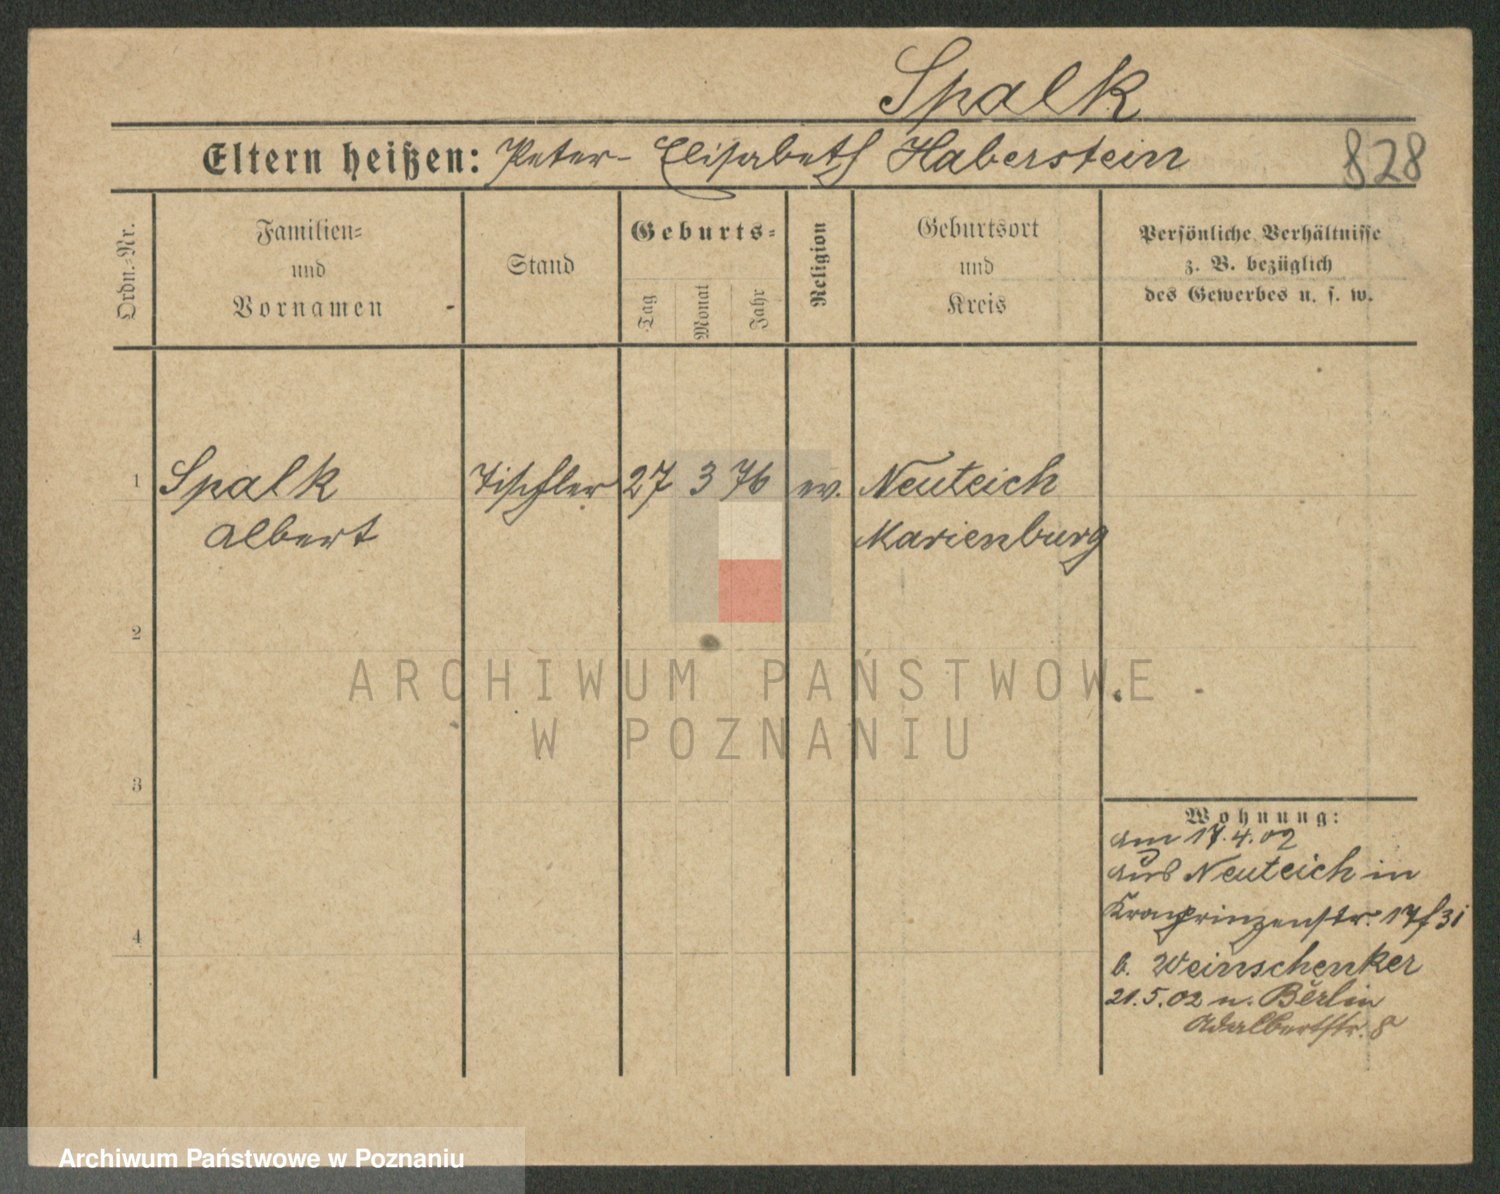 Spalk
Eltern heißen: Peter - Elisabeth Haberstein
828
Ordn.=Nr.
Familien=
und
Vornamen
Stand
Geburts=
Tag
Monat
Jahr
Religion
Geburtsort
und
Kreis
Persönliche Verhältnisse
z. B. bezüglich
des Gewerbes u. s. w.
1 Spalk Tischler 27 3 76 ev. Neuteich
Albert Marienburg
2
ARCHIWUM PAŃSTWOWE
W POZNANIU
3
Wohnung:
am 17.4.02
aus Neuteich in
Kronprinzenstr. 17
4
b. Weinschenker
21.5.02 n. Berlin
Adalbertstr. 8
Archiwum Państwowe w Poznaniu